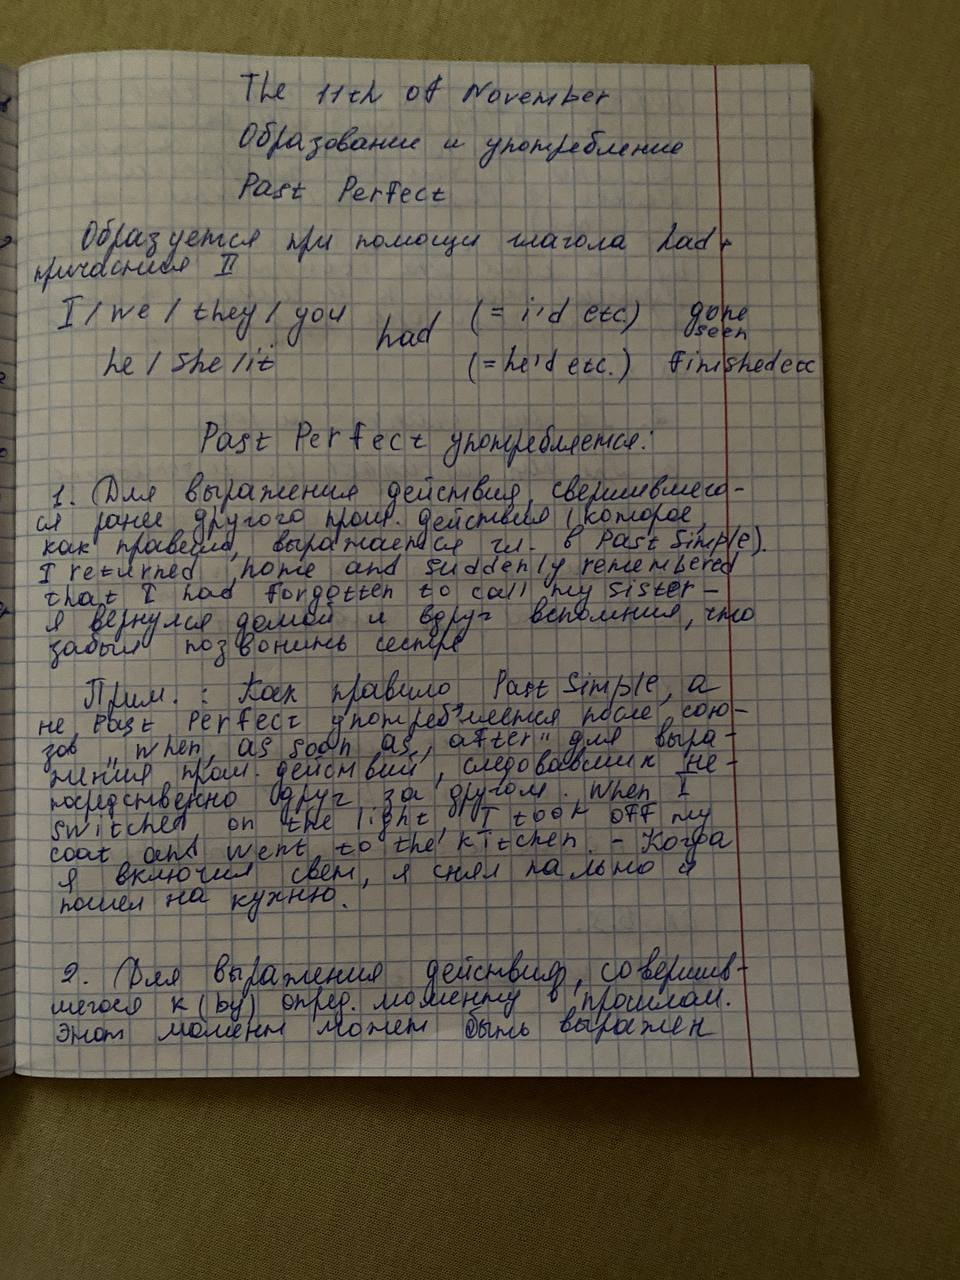 The 11th of November
Образование и употребление
Past Perfect
Образуется при помощи глагола had +
причастия II
I / we / they / you had (= i'd etc.) gone
seen
he / she / it (= he'd etc.) finished etc
Past Perfect употребляется:
1. Для выражения действия, свершившего-
ся ранее другого прош. действия (которое,
как правило, выражается гл. в Past Simple).
I returned home and suddenly remembered
that I had forgotten to call my sister –
я вернулся домой и вдруг вспомнил, что
забыл позвонить сестре
Прим.: Как правило Past Simple, а
не Past Perfect употребляется после сою-
зов "when, as soon as, after" для выра-
жения прош. действий, следовавших не-
посредственно друг за другом. When I
switched on the light, I took off my
coat and went to the kitchen. – Когда
я включил свет, я снял пальто и
пошел на кухню.
2. Для выражения действия, соверши-
вшегося к (by) опред. моменту в прошлом.
Этот момент может быть выражен